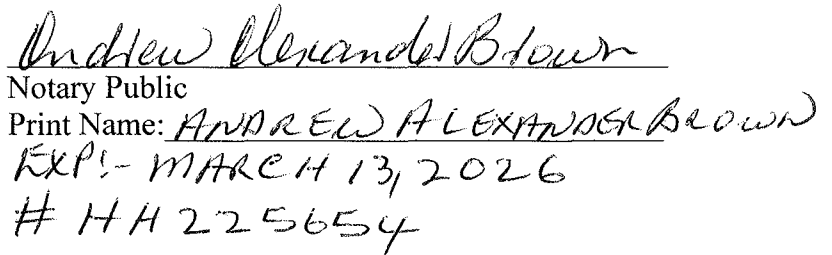 Andrew Alexander Brown
Notary Public
Print Name: ANDREW ALEXANDER BROWN
EXP:- MARCH 13, 2026
# HH 225654